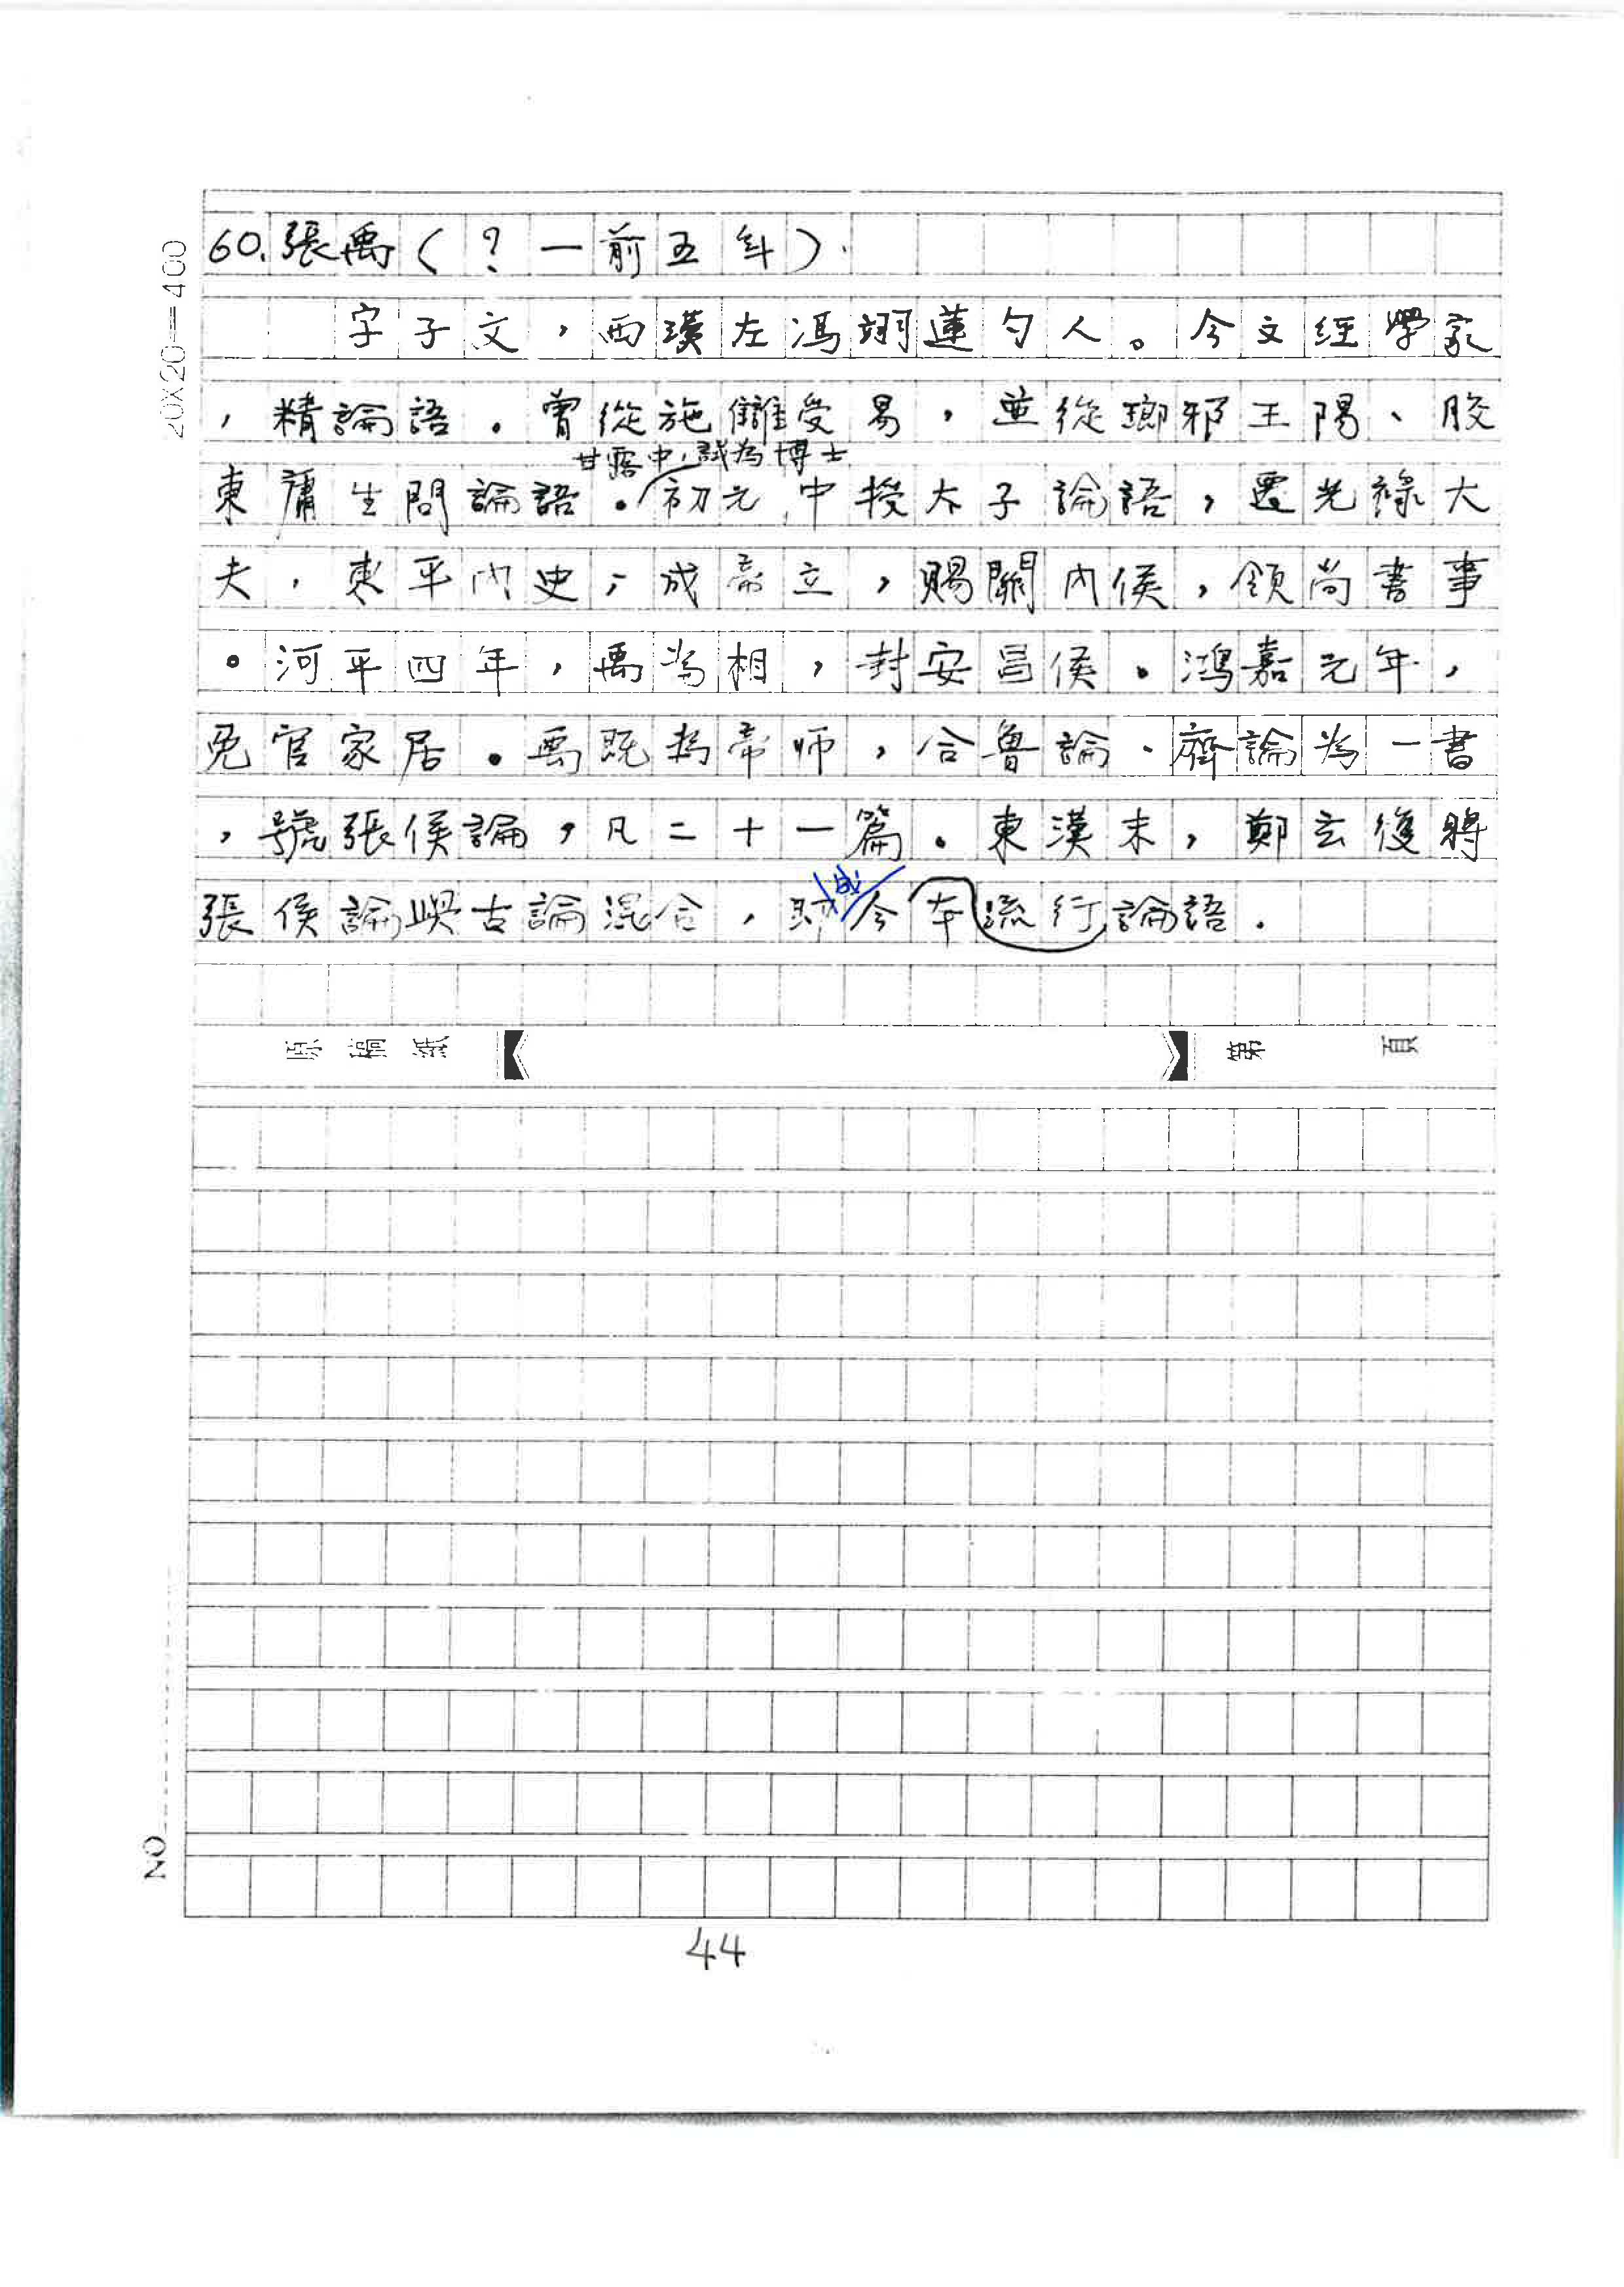 20X20=400
60.張禹(?—前五年)
字子文,西漢左馮翊蓮勺人。今文經學家
,精論語。曾從施讎受易,並從瑯邪王陽、膠
甘露中,試為博士
東庸生問論語。初元中授太子論語,遷光祿大
夫,東平內史;成帝立,賜關內侯,領尚書事
。河平四年,禹為相,封安昌侯。鴻嘉元年,
免官家居。禹既為帝師,合魯論、齊論為一書
,號張侯論,凡二十一篇。東漢末,鄭玄復將
成
張侯論與古論混合,今本流行論語。
原稿紙 第 頁
NO
44